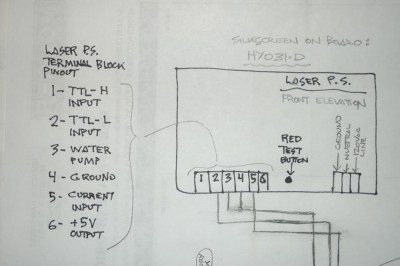 LASER P.S.
TERMINAL BLOCK
PINOUT
1- TTL-H
INPUT
2- TTL-L
INPUT
3- WATER
PUMP
4- GROUND
5- CURRENT
INPUT
6- +5V
OUTPUT
SILKSCREEN ON BOARD:
HY031-D
LASER P.S.
FRONT ELEVATION
RED
TEST
BUTTON
GROUND
NEUTRAL
120VAC
LINE
1 2 3 4 5 6